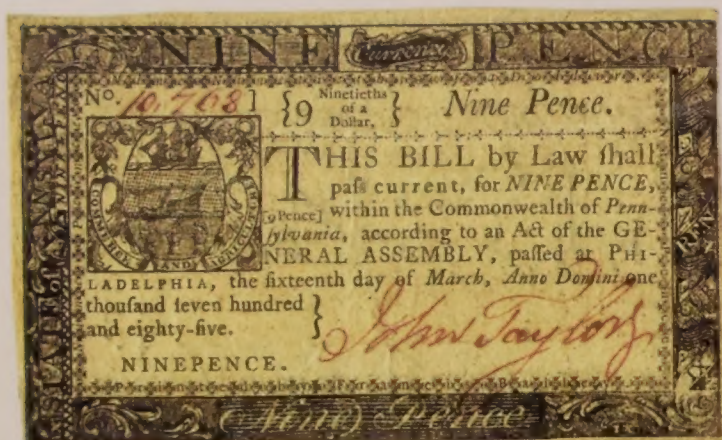 NINE Currency PENCE
No. 10,768] {9 Ninetieths of a Dollar,} Nine Pence.
THIS BILL by Law ſhall
paſs current, for NINE PENCE,
[9Pence] within the Commonwealth of Penn-
ſylvania, according to an Act of the GE-
NERAL ASSEMBLY, paſſed at PHI-
LADELPHIA, the ſixteenth day of March, Anno Domini one
thouſand ſeven hundred
and eighty-five. }
John Taylor
NINEPENCE.
Nine Pence
STATE of PENNSYLVANIA
COMMERCE AND AGRICULTURE